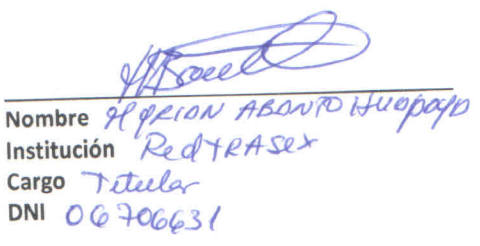 Nombre Myrian Abanto Huapaya
Institución RedTRASex
Cargo Titular
DNI 06706631